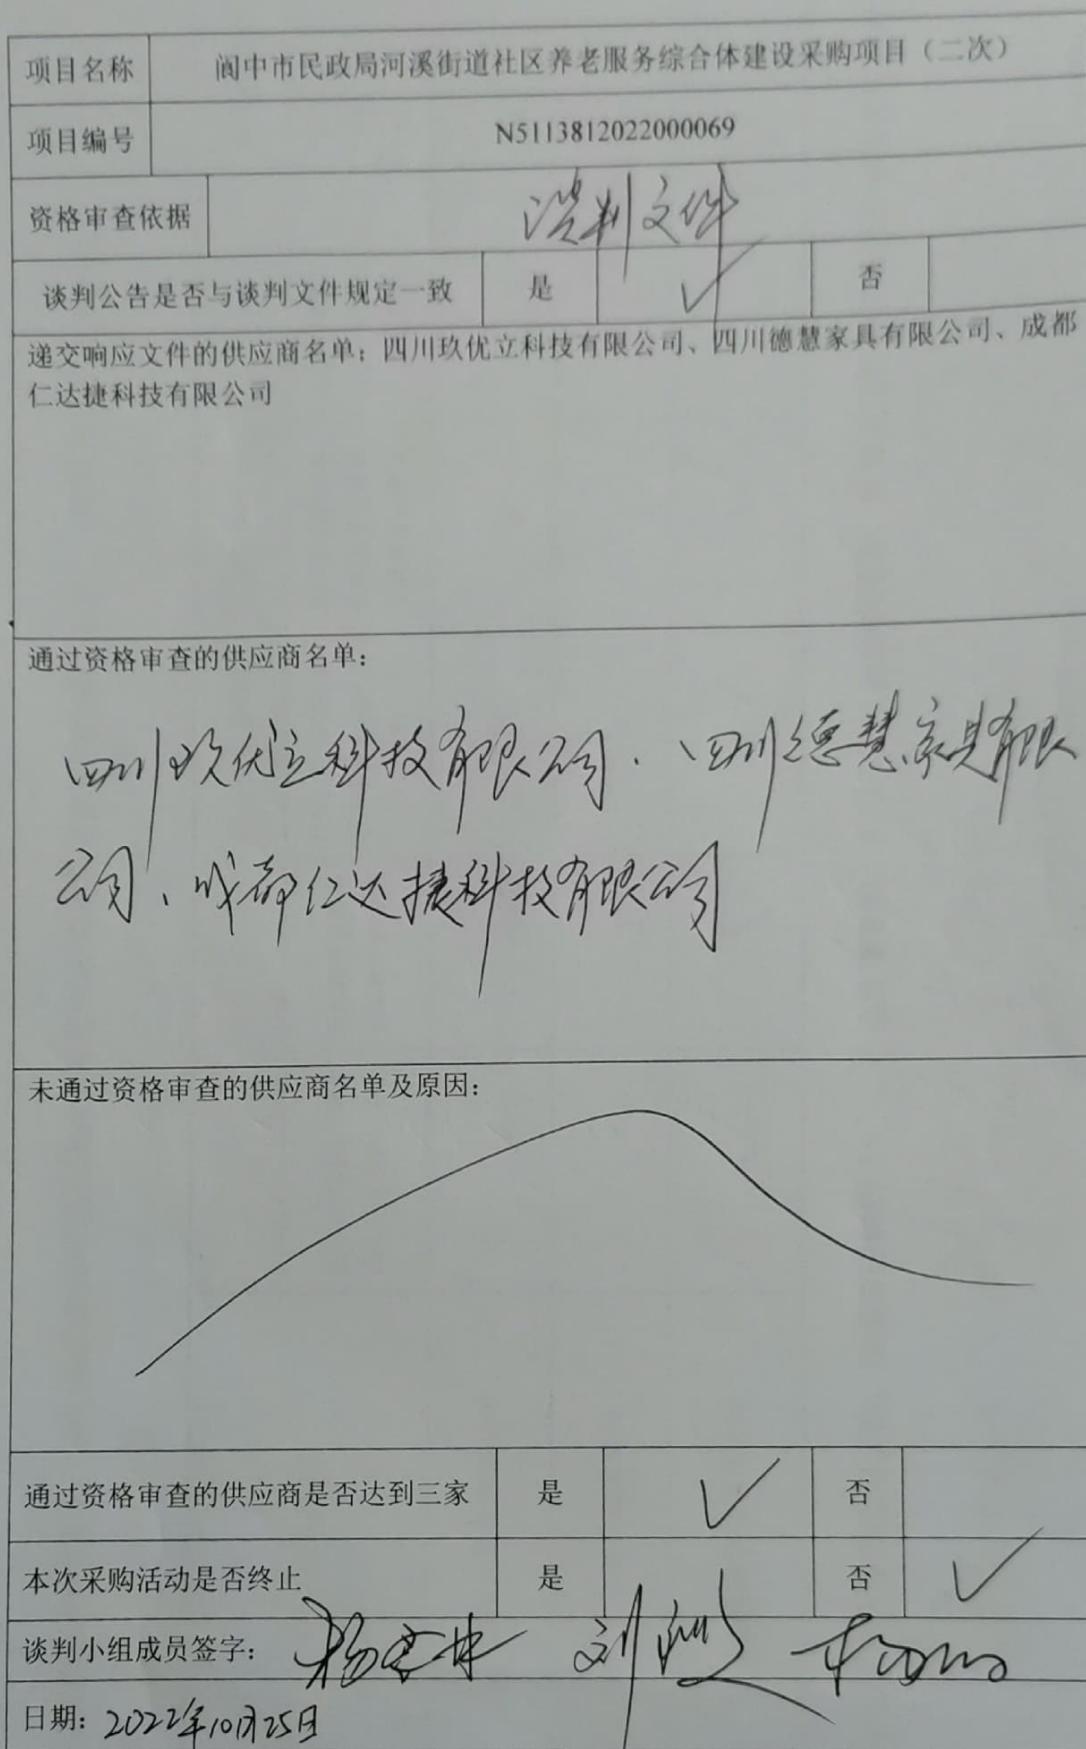 项目名称 阆中市民政局河溪街道社区养老服务综合体建设采购项目（二次）
项目编号 N5113812022000069
资格审查依据 谈判文件
谈判公告是否与谈判文件规定一致 是 ✓ 否
递交响应文件的供应商名单：四川玖优立科技有限公司、四川德慧家具有限公司、成都
仁达捷科技有限公司
通过资格审查的供应商名单：
四川玖优立科技有限公司、四川德慧家具有限
公司、成都仁达捷科技有限公司
未通过资格审查的供应商名单及原因：
通过资格审查的供应商是否达到三家 是 ✓ 否
本次采购活动是否终止 是 否 ✓
谈判小组成员签字：
日期：2022年10月25日